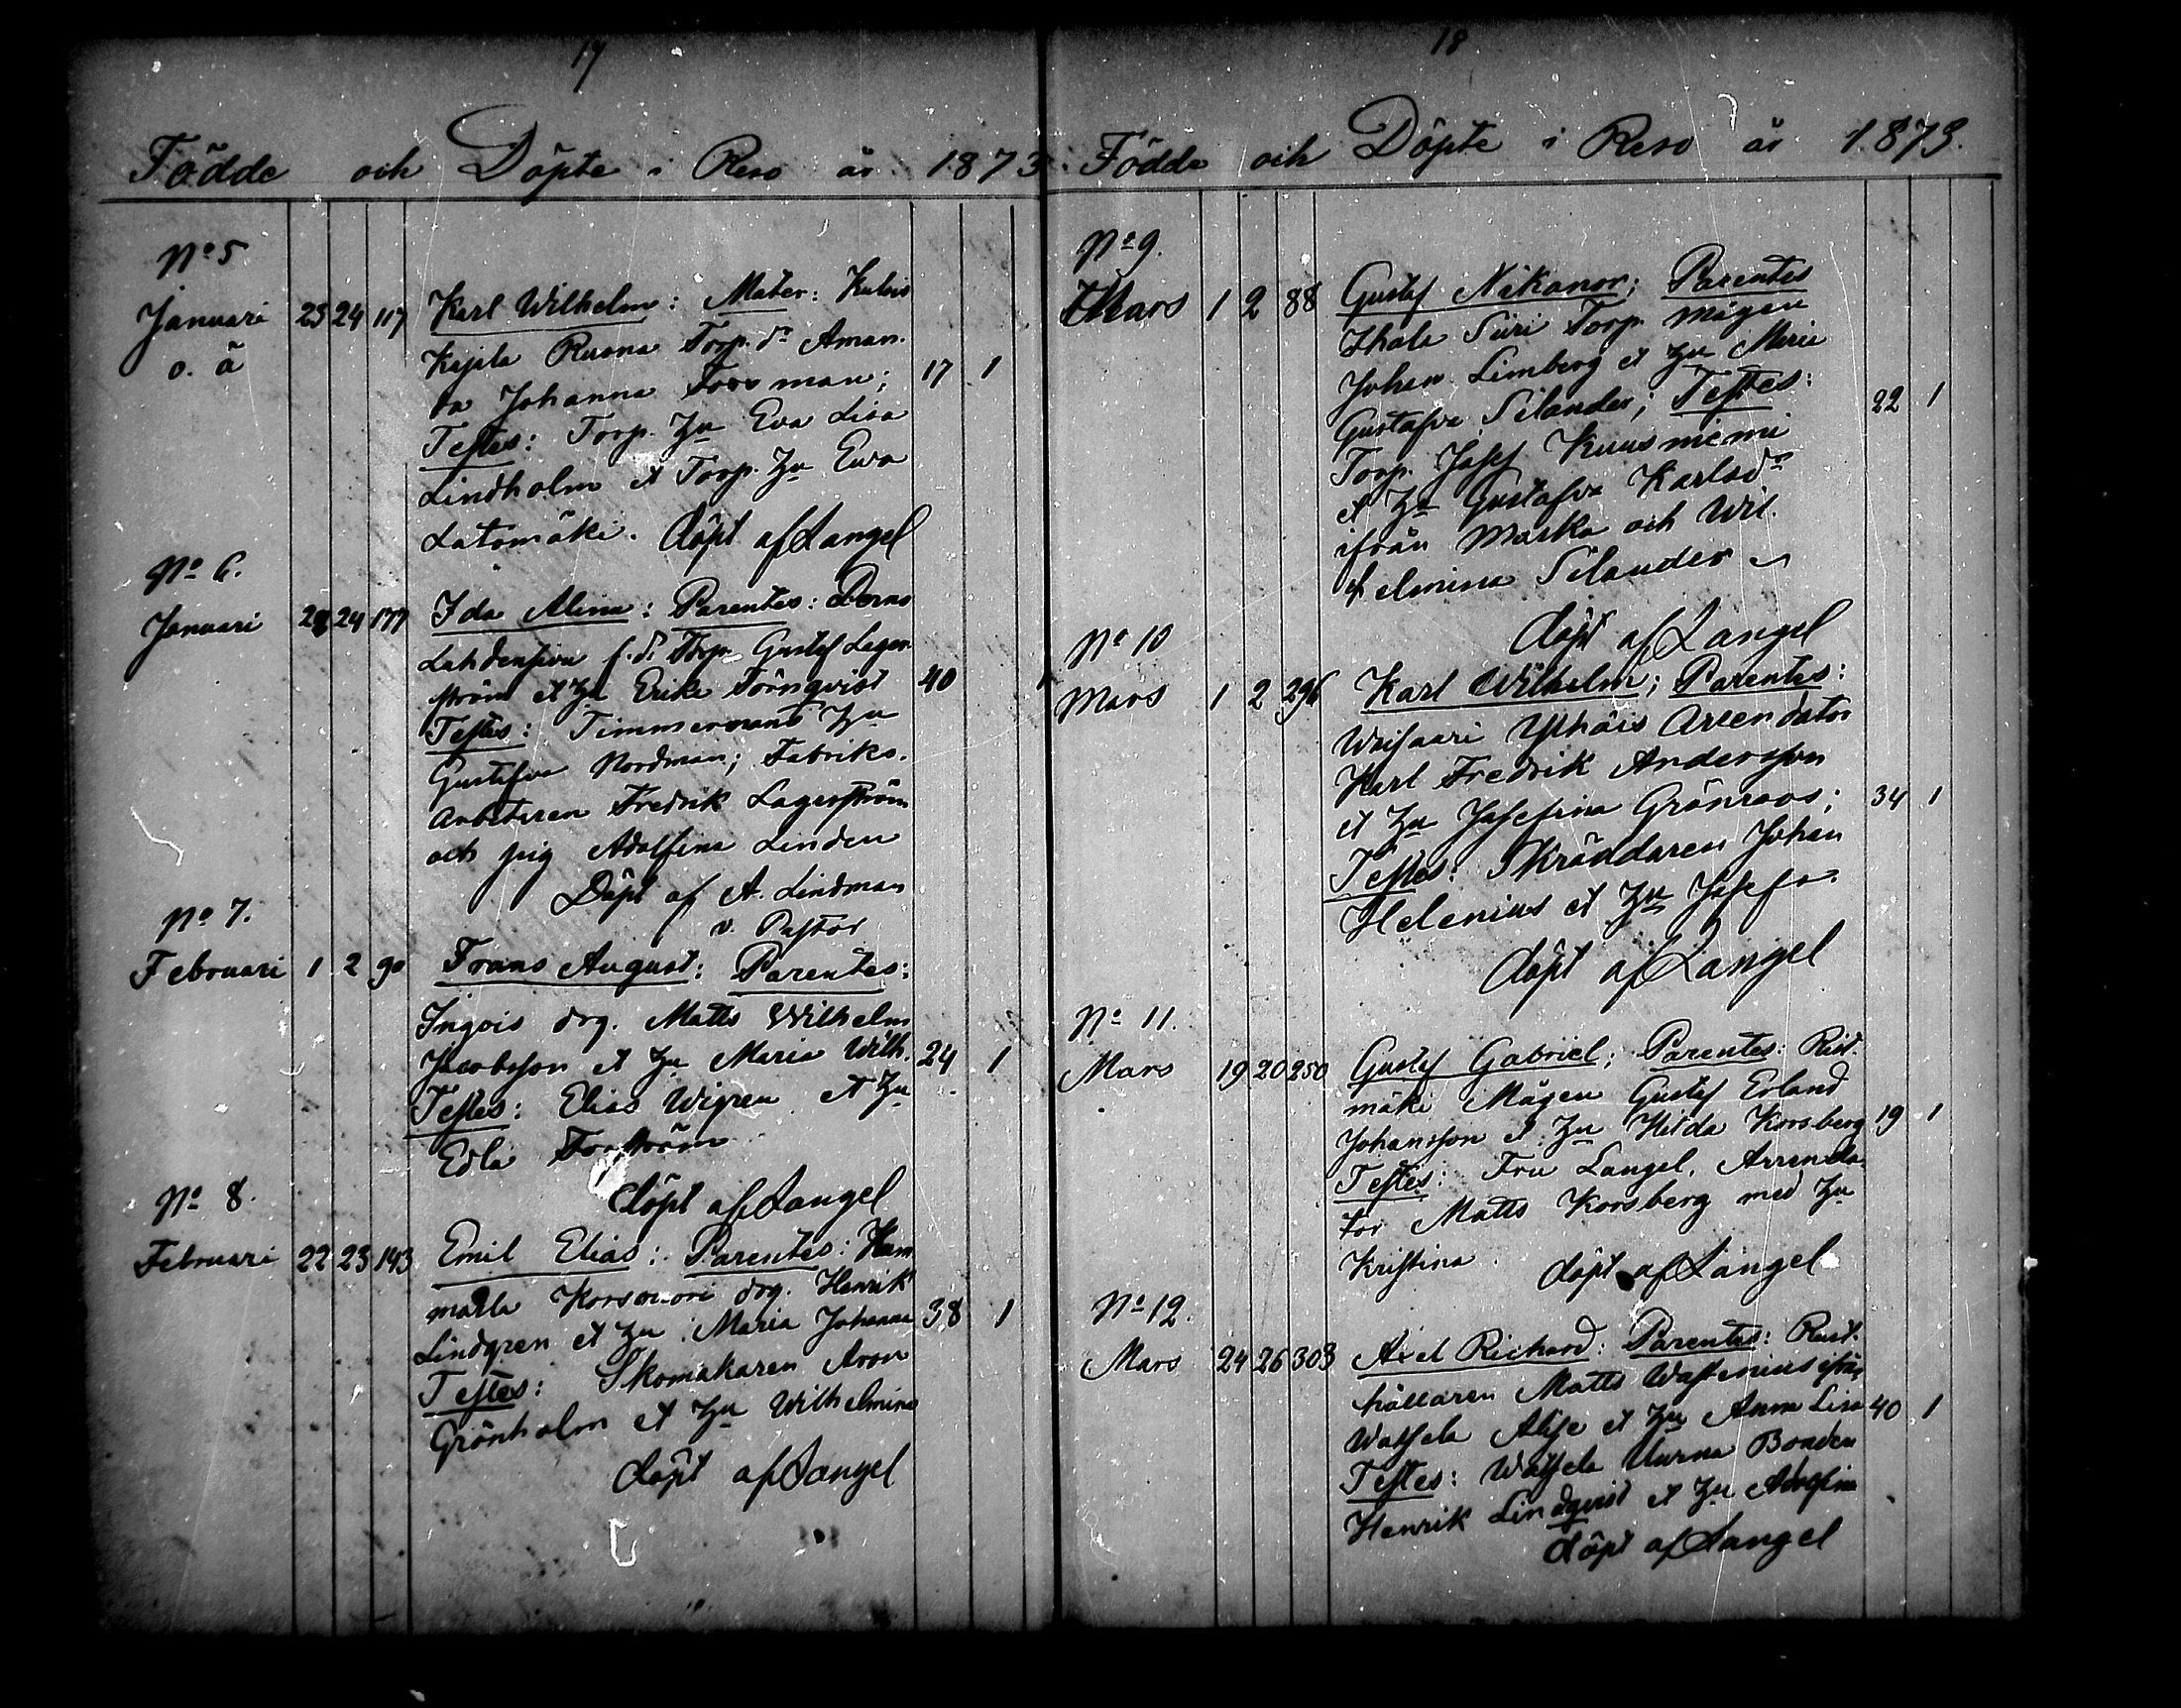 17
Födde och Döpte i Reso år 1873
No 5
Januari 23 24 117 Karl Wilhelm: Mater:
o. ä
Kajila Ruona Torp. dr Aman-
da Johanna Forsman; 17 1
Testes: Torp. Hu Eva Lisa
Lindholm et Torp. Hu Ewa
Latomäki. döpt af Langel
No 6.
Januari 24 177 Ida Alina: Parentes:
f. d. Torp. Gustaf Lager-
ström et Hu Erika Törnqvist 40
Testes: Timmermans Hu
Gustafva Nordman; Fabriks-
Arbetaren Fredrik Lagerström
och pig Adolfina Linden
Döpt af A. Lindman
v. Pastor
No 7.
Februari 1 2 90 Frans August: Parentes:
Ingois drg. Matts Wilhelm
Jacobsson et Hu Maria Wilh. 24 1
Testes: Elias Wigren et Hu
Edla Forström
döpt af Langel
No 8.
Februari 22 23 143 Emil Elias: Parentes: Hum
mala Korsvuori drg. Henrik
Lindgren et Hu Maria Johanna 38 1
Testes: Skomakaren Aron
Grönholm et Hu Wilhelmina
döpt af Langel
18
Födde och Döpte i Reso år 1873.
No 9.
Mars 1 2 88 Gustaf Nikanor; Parentes
Ihala Siiri Torp. mågen
Johan Limberg et Hu Maria
Gustafva Silander; Testes: 22 1
Torp. Josef Kuusniemi
et Hu Gustafva Karlsdr
ifrån Masko och Wil-
helmina Silander
döpt af Langel
No 10
Mars 1 2 296 Karl Wilhelm; Parentes:
Arrendator
Karl Fredrik Andersson
et Hu Josefina Grönroos; 34 1
Testes: Skräddaren Johan
Helenius et Hu Josefa.
döpt af Langel
No 11.
Mars 19 20 250 Gustaf Gabriel; Parentes: Rist-
mäki Mågen Gustaf Erland
Johansson et Hu Hilda Korsberg 19 1
Testes: Fru Langel, Arrenda-
tor Matts Korsberg med Hu
Kristina. döpt af Langel
No 12.
Mars 24 26 303 Axel Richard: Parentes: Rust-
hållaren Matts Wastenius ifrån
Watsela Alije et Hu Anna Lisa 40 1
Testes: Watsela Uurna Bonden
Henrik Lindqvist et Hu Adolfina
döpt af Langel